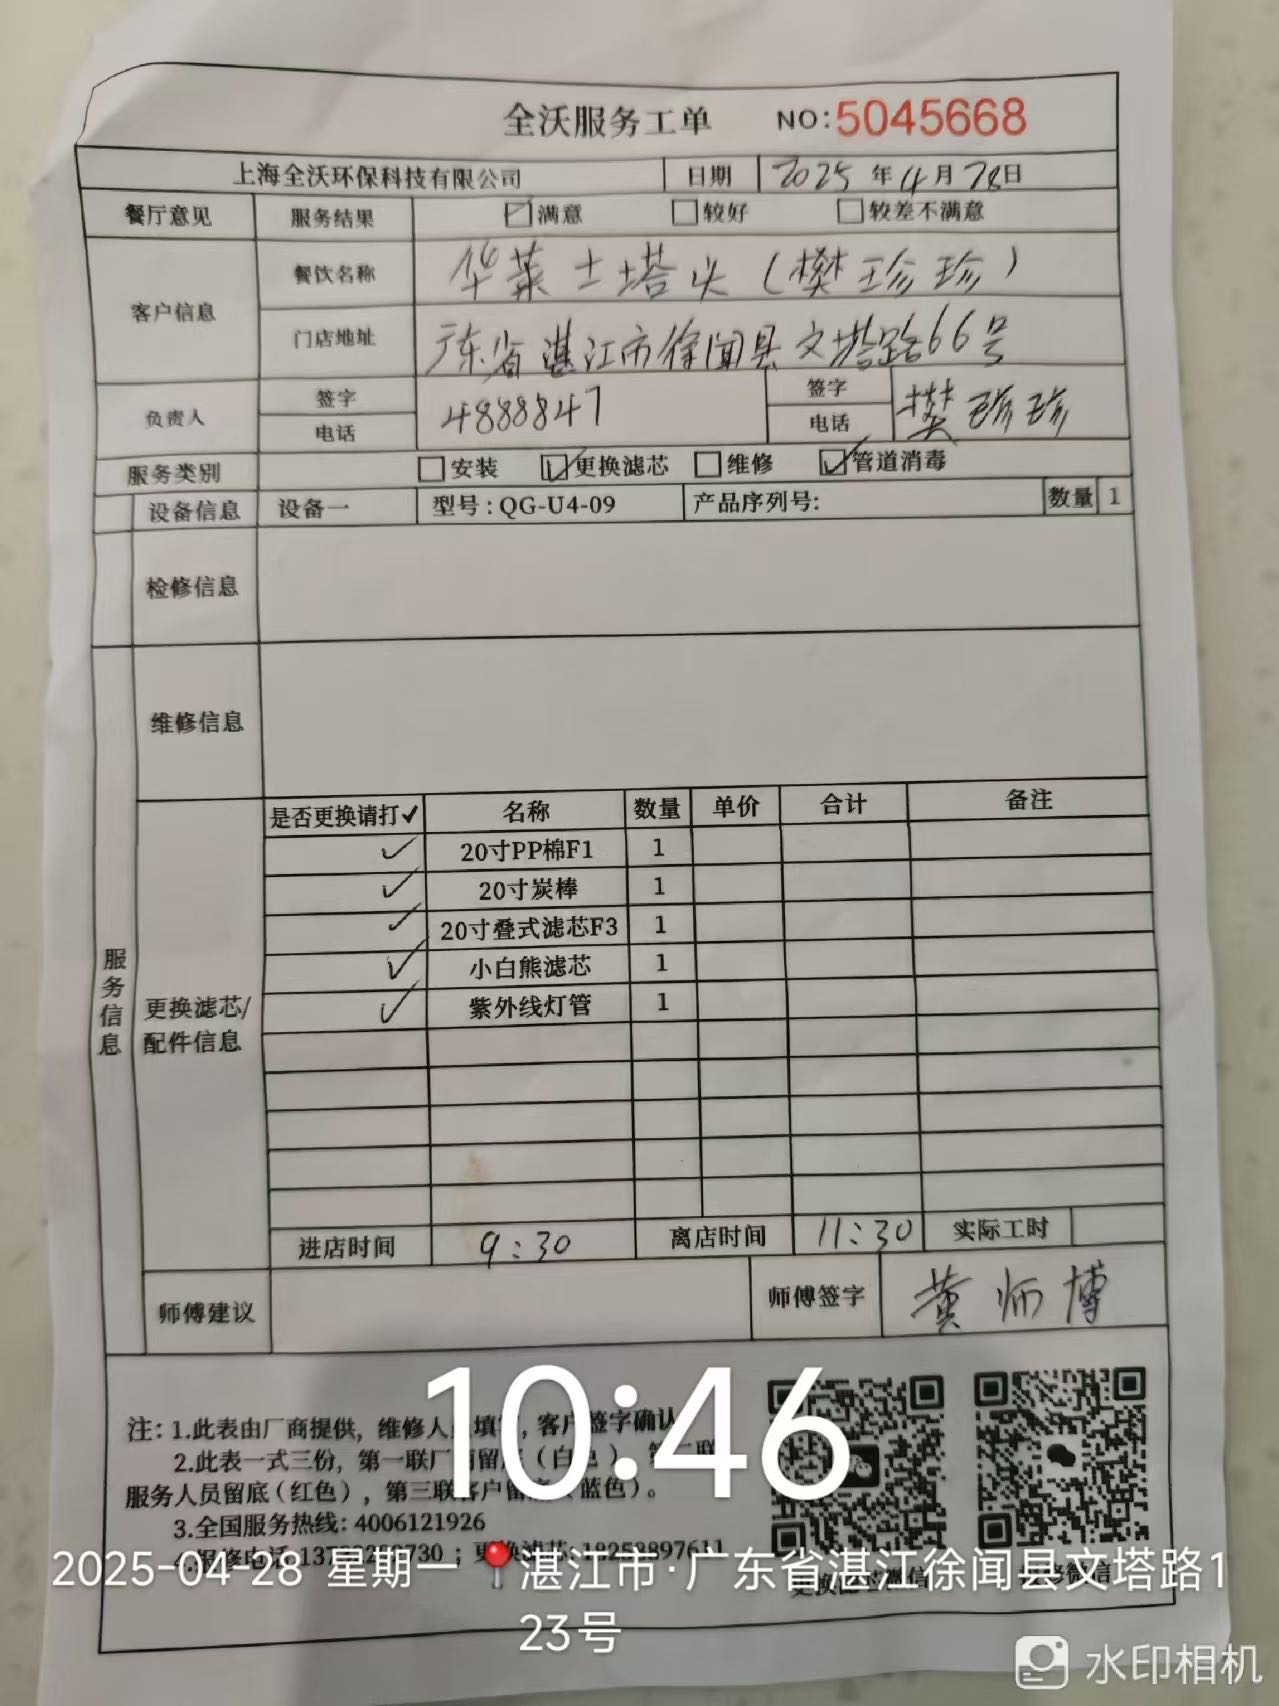 全沃服务工单 NO:5045668
上海全沃环保科技有限公司 日期 2025年4月28日
餐厅意见 服务结果 ☑满意 □较好 □较差不满意
客户信息 餐饮名称 华莱士塔头(樊珍珍)
门店地址 广东省湛江市徐闻县文塔路66号
负责人 签字 电话 4888847 签字 电话 樊珍珍
服务类别 □安装 ☑更换滤芯 □维修 ☑管道消毒
设备信息 设备一 型号:QG-U4-09 产品序列号: 数量 1
检修信息
维修信息
服务信息
更换滤芯/配件信息
是否更换请打✓ 名称 数量 单价 合计 备注
✓ 20寸PP棉F1 1
✓ 20寸炭棒 1
✓ 20寸叠式滤芯F3 1
✓ 小白熊滤芯 1
✓ 紫外线灯管 1
进店时间 9:30 离店时间 11:30 实际工时
师傅建议 师傅签字 黄师博
注: 1.此表由厂商提供, 维修人员填 , 客户签字确认
2.此表一式三份, 第一联厂 留底(白色), 第 联
服务人员留底(红色), 第三联客户留 蓝色)。
3.全国服务热线: 4006121926
4.报修电话 ; 更换滤芯:
更换滤芯微信 微信
10:46
2025-04-28 星期一 湛江市·广东省湛江徐闻县文塔路1
23号
水印相机